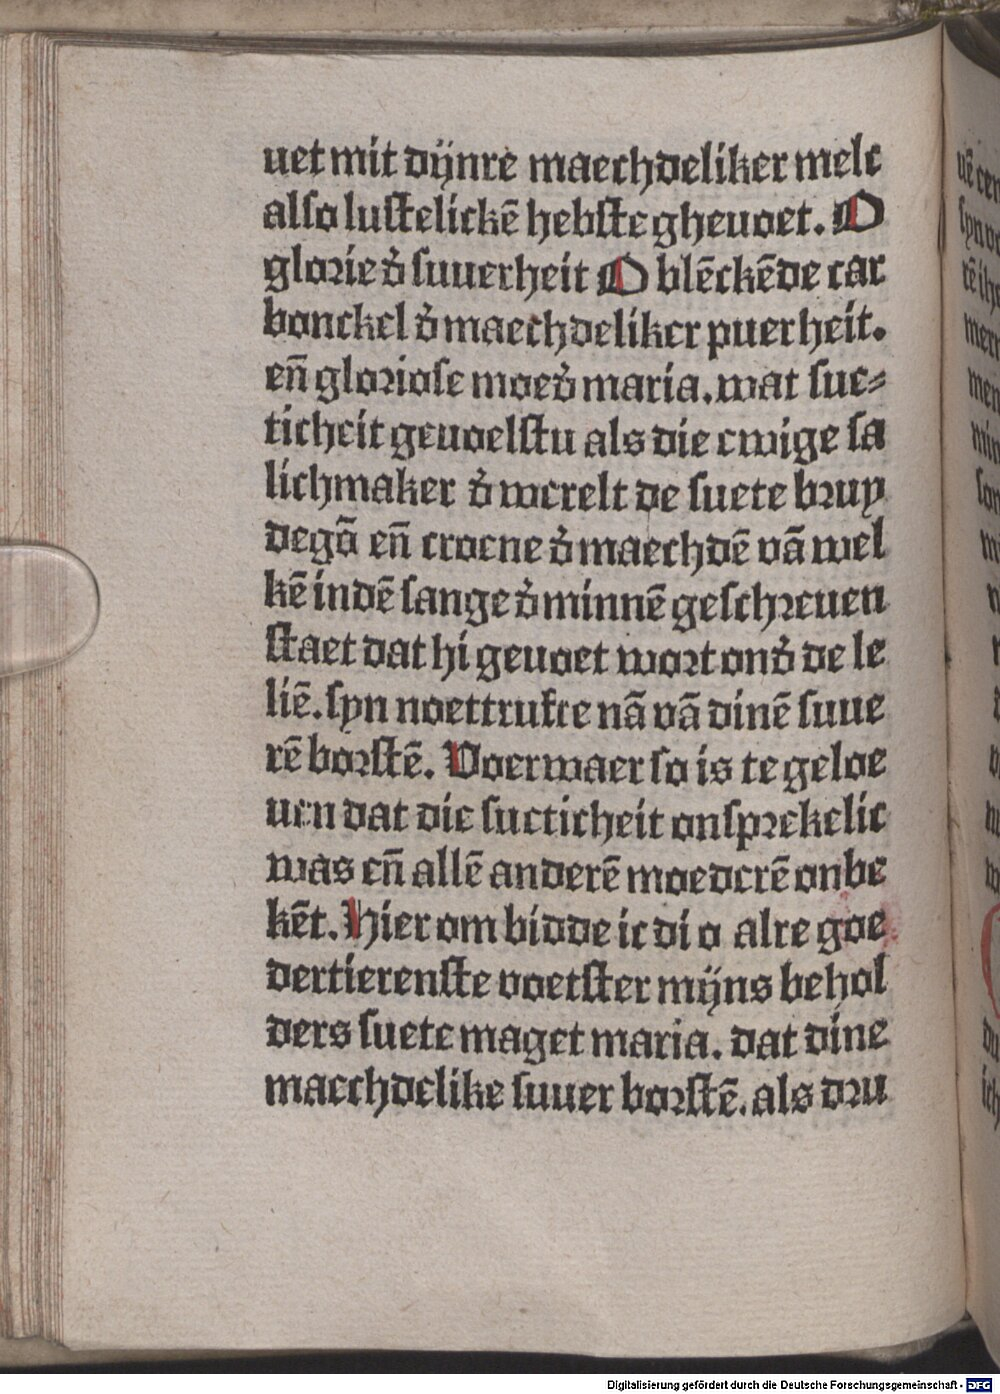 uet mit dijnre maechdeliker melc
also lustelickē hebste gheuoet. O
glorie d̕ suuerheit O blēckēde car
bonckel d̕ maechdeliker puerheit.
en̄ gloriose moed̕ maria. wat sue⸗
ticheit geuoelstu als die ewige sa
lichmaker d̕ werelt de suete bruy
degō en̄ croene d̕ maechdē vā wel
kē indē sange d̕ minnē geschreuen
staet dat hi geuoet wort ond̕ de le
liē. syn noettrukte nā vā dinē suue
rē borstē. Voerwaer so is te geloe
uen dat die sueticheit onsprekelic
was en̄ allē anderē moederē onbe
kēt. Hier om bidde ic di o alre goe
dertierenste voetster mijns behol
ders suete maget maria. dat dine
maechdelike suuer borstē. als dru
Digitalisierung gefördert durch die Deutsche Forschungsgemeinschaft - DFG